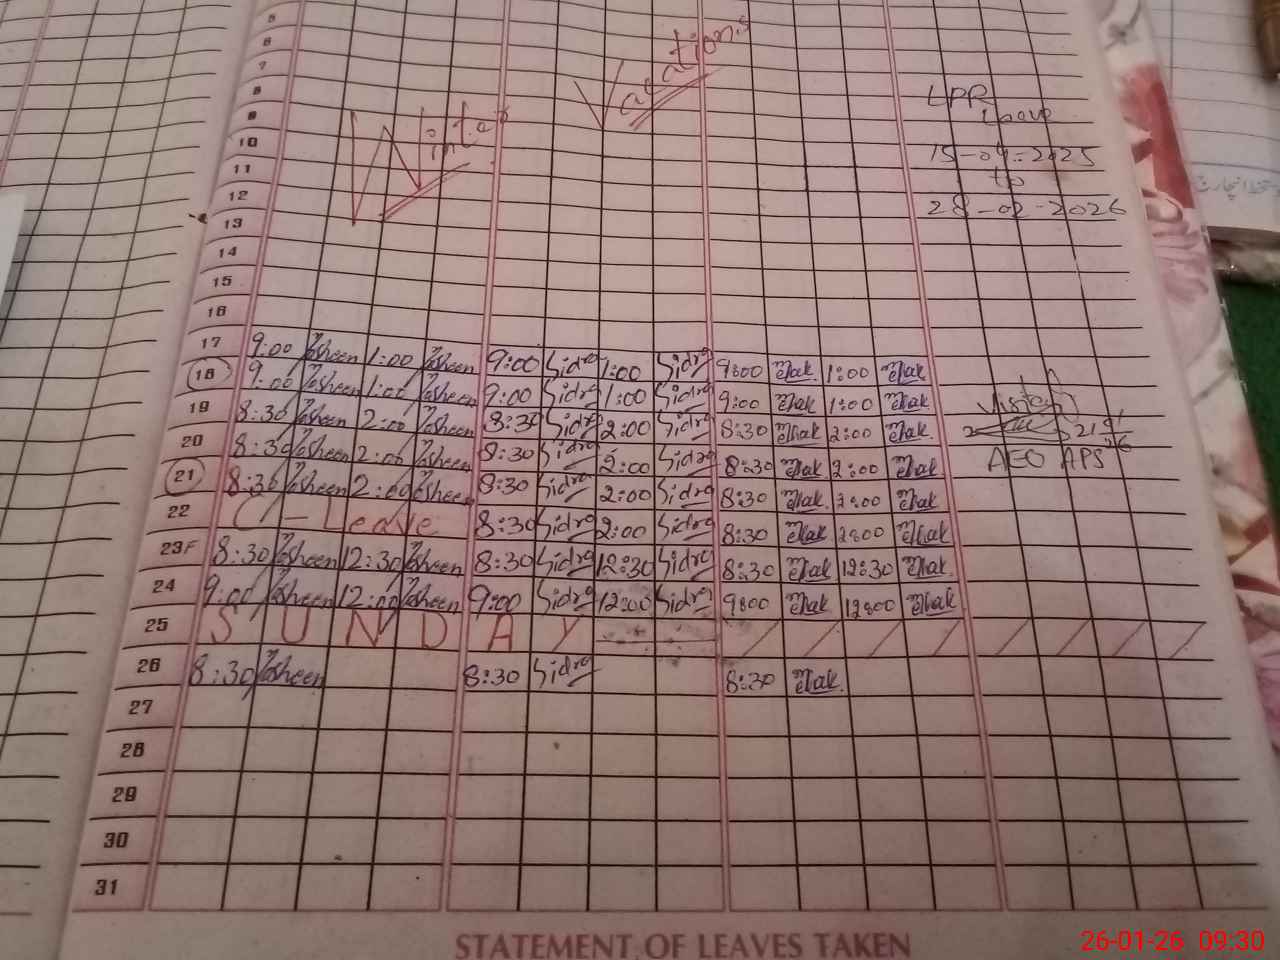 5
6
7
8
9
10
11
12
13
14
15
16
Winter Vacations
LPR
Leave
15-04-2025
to
28-02-2026
17 9:00 Nosheen 1:00 Nosheen 9:00 Sidra 1:00 Sidra 9:00 1:00
18 9:00 Nosheen 1:00 Nosheen 9:00 Sidra 1:00 Sidra 9:00 1:00
19 8:30 Nosheen 2:00 Nosheen 8:30 Sidra 2:00 Sidra 8:30 2:00
20 8:30 Nosheen 2:00 Nosheen 8:30 Sidra 2:00 Sidra 8:30 2:00
21 8:30 Nosheen 2:00 Nosheen 8:30 Sidra 2:00 Sidra 8:30 2:00
22 C-Leave 8:30 Sidra 2:00 Sidra 8:30 2:00
23F 8:30 Nosheen 12:30 Nosheen 8:30 Sidra 12:30 Sidra 8:30 12:30
24 9:00 Nosheen 12:00 Nosheen 9:00 Sidra 12:00 Sidra 9:00 12:00
25 SUNDAY
26 8:30 Nosheen 8:30 Sidra 8:30
27
28
29
30
31
AEO APS
STATEMENT OF LEAVES TAKEN
26-01-26 09:30